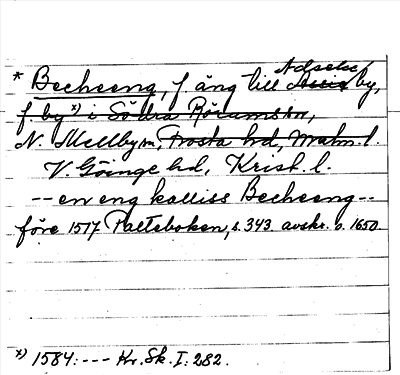 Adseke
* Becheeng, f. äng till Assie by,
f. by x) i Södra Rörumskn,
N. Mellby sn, Frosta hd, Malm. l.
V. Göinge hd, Krist. l.
-- en eng kalliss Becheeng --
före 1517 Palteboken, s. 343 avskr. o. 1650.
x) 1584: --- Kr. Sk. I: 282.